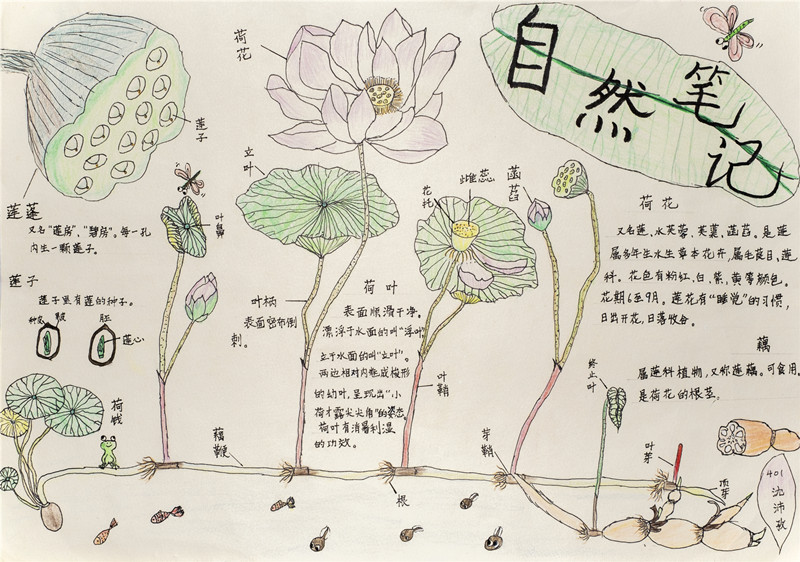 自然笔记
荷花
莲子
莲蓬
又名"莲房"、"碧房"。每一孔
内生一颗莲子。
莲子
莲子里有莲的种子。
种皮
胚
莲心
荷钱
立叶
叶鼻
叶柄
表面密布倒
刺。
荷叶
表面顺滑干净。
漂浮于水面的叫"浮叶"
立于水面的叫"立叶"。
两边相对内卷成梭形
的幼叶,呈现出"小
荷才露尖尖角"的姿态
荷叶有消暑利湿
的功效。
花托
雌蕊
菡萏
荷花
又名莲、水芙蓉、芙蕖、菡萏。是莲
属多年生水生草本花卉,属毛茛目,莲
科。花色有粉红、白、紫、黄等颜色。
花期6至9月。莲花有"睡觉"的习惯,
日出开花,日落收合。
藕
属莲科植物,又称莲藕。可食用,
是荷花的根茎。
终止叶
叶鞘
芽鞘
藕鞭
根
叶芽
顶芽
401